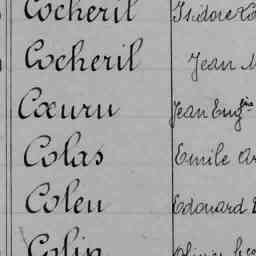 Cocheril Isidore
Cocheril Jean
Cœuru Jean Eug.ne
Colas Emile
Coleu Edouard
Colin Olivier